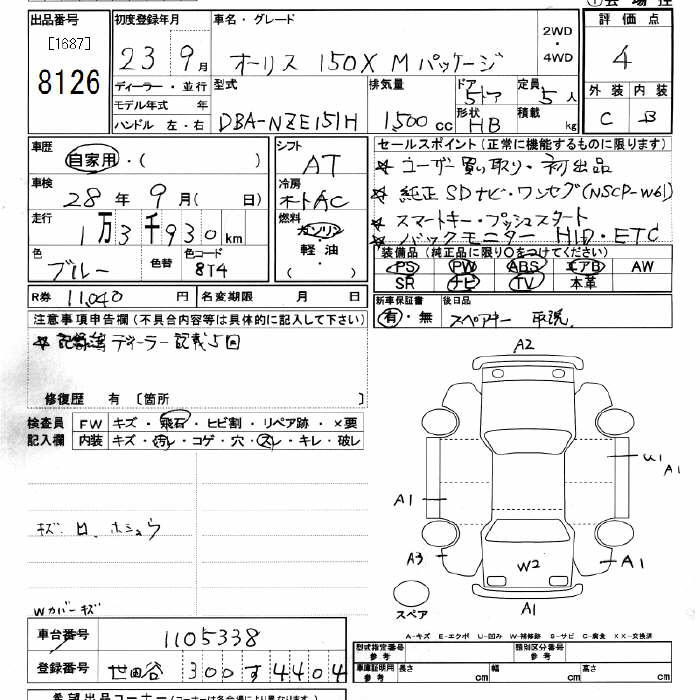 ① 会 場 控
出品番号 初度登録年月 車名・グレード 評 価 点
[1687] 8126
23 9月 オーリス 150X Mパッケージ 2WD・4WD 4
ディーラー・並行 型式 排気量 ドア 定員 外 装 内 装
モデル年式 年 5ドア 5人
ハンドル 左・右 DBA-NZE151H 1500cc 形状 HB 積載 kg C B
車歴 シフト セールスポイント(正常に機能するものに限ります)
自家用・( ) AT ☆ ユーザー買い取り・初出品
車検 冷房 ☆ 純正SDナビ・ワンセグ(NSCP-W61)
28年 9月( 日) オートAC ☆ スマートキー・プッシュスタート
走行 燃料 ☆ バックモニター HID・ETC
1万3千930km ガソリン 軽・油 ( )
色 色替 色コード 装備品(純正品に限り○をつけてください)
ブルー 8T4 PS PW ABS エアB AW
SR ナビ TV 本革
R券 11,040円 名変期限 月 日 新車保証書 後日品
有・無 スペアキー 取説
注意事項申告欄(不具合内容等は具体的に記入して下さい)
☆ 記録簿ディーラー記載5回
修復歴 有 〔箇所 〕
検査員 記入欄 FW キズ・飛石・ヒビ割・リペア跡・×要
内装 キズ・汚レ・コゲ・穴・スレ・キレ・破レ
キズ
Wカバーキズ
A2
U1
A1
A1
A3
W2
A1
A1
スペア
A-キズ E-エクボ U-凹み W-補修跡 S-サビ C-腐食 XX-交換済
車台番号 1105338
型式指定番号 参考 類別区分番号 参考
登録番号 世田谷 300 す 4404
車庫証明用 参考 長さ cm 幅 cm 高さ cm
希望出品コーナー(コーナーは各会場により異なります)